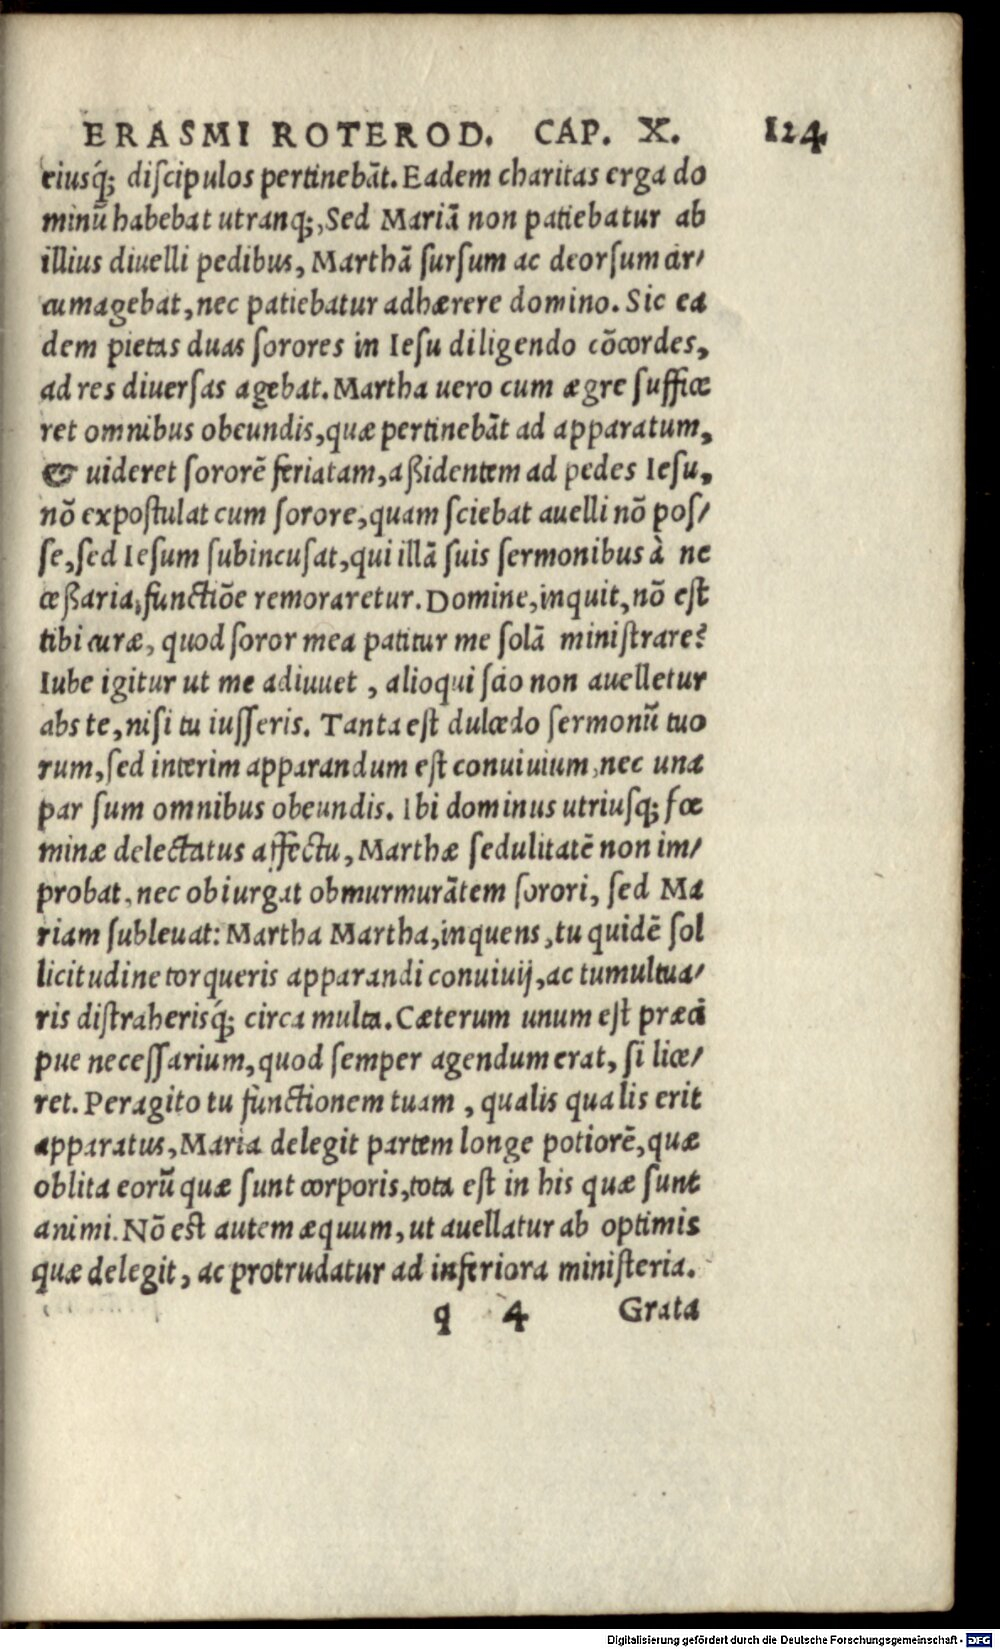 ERASMI ROTEROD. CAP. X. 124
eiusq́; diſcipulos pertinebāt. Eadem charitas erga do
minū habebat utranq;, Sed Mariā non patiebatur ab
illius diuelli pedibus, Marthā ſurſum ac deorſum cir/
cumagebat, nec patiebatur adhærere domino. Sic ea
dem pietas duas ſorores in Ieſu diligendo cōcordes,
ad res diuerſas agebat. Martha uero cum ægre ſuffice
ret omnibus obeundis, quæ pertinebāt ad apparatum,
& uideret ſororē feriatam, aßidentem ad pedes Ieſu,
nō expoſtulat cum ſorore, quam ſciebat auelli nō poſ/
ſe, ſed Ieſum ſubincuſat, qui illā ſuis ſermonibus à ne
ceßaria functiōe remoraretur. Domine, inquit, nō eſt
tibi curæ, quod ſoror mea patitur me ſolā miniſtrare?
Iube igitur ut me adiuuet, alioqui ſcio non auelletur
abs te, niſi tu iuſſeris. Tanta eſt dulcedo ſermonū tuo
rum, ſed interim apparandum eſt conuiuium, nec una
par ſum omnibus obeundis. Ibi dominus utriuſq; fœ
minæ delectatus affectu, Marthæ ſedulitatē non im/
probat, nec obiurgat obmurmurātem ſorori, ſed Ma
riam ſubleuat: Martha Martha, inquens, tu quidē ſol
licitudine torqueris apparandi conuiuij, ac tumultua/
ris diſtraherisq́; circa multa. Cæterum unum eſt præci
pue neceſſarium, quod ſemper agendum erat, ſi lice/
ret. Peragito tu functionem tuam, qualis qualis erit
apparatus, Maria delegit partem longe potiorē, quæ
oblita eorū quæ ſunt corporis, tota eſt in his quæ ſunt
animi. Nō eſt autem æquum, ut auellatur ab optimis
quæ delegit, ac protrudatur ad inferiora miniſteria.
q 4 Grata
Digitalisierung gefördert durch die Deutsche Forschungsgemeinschaft - DFG